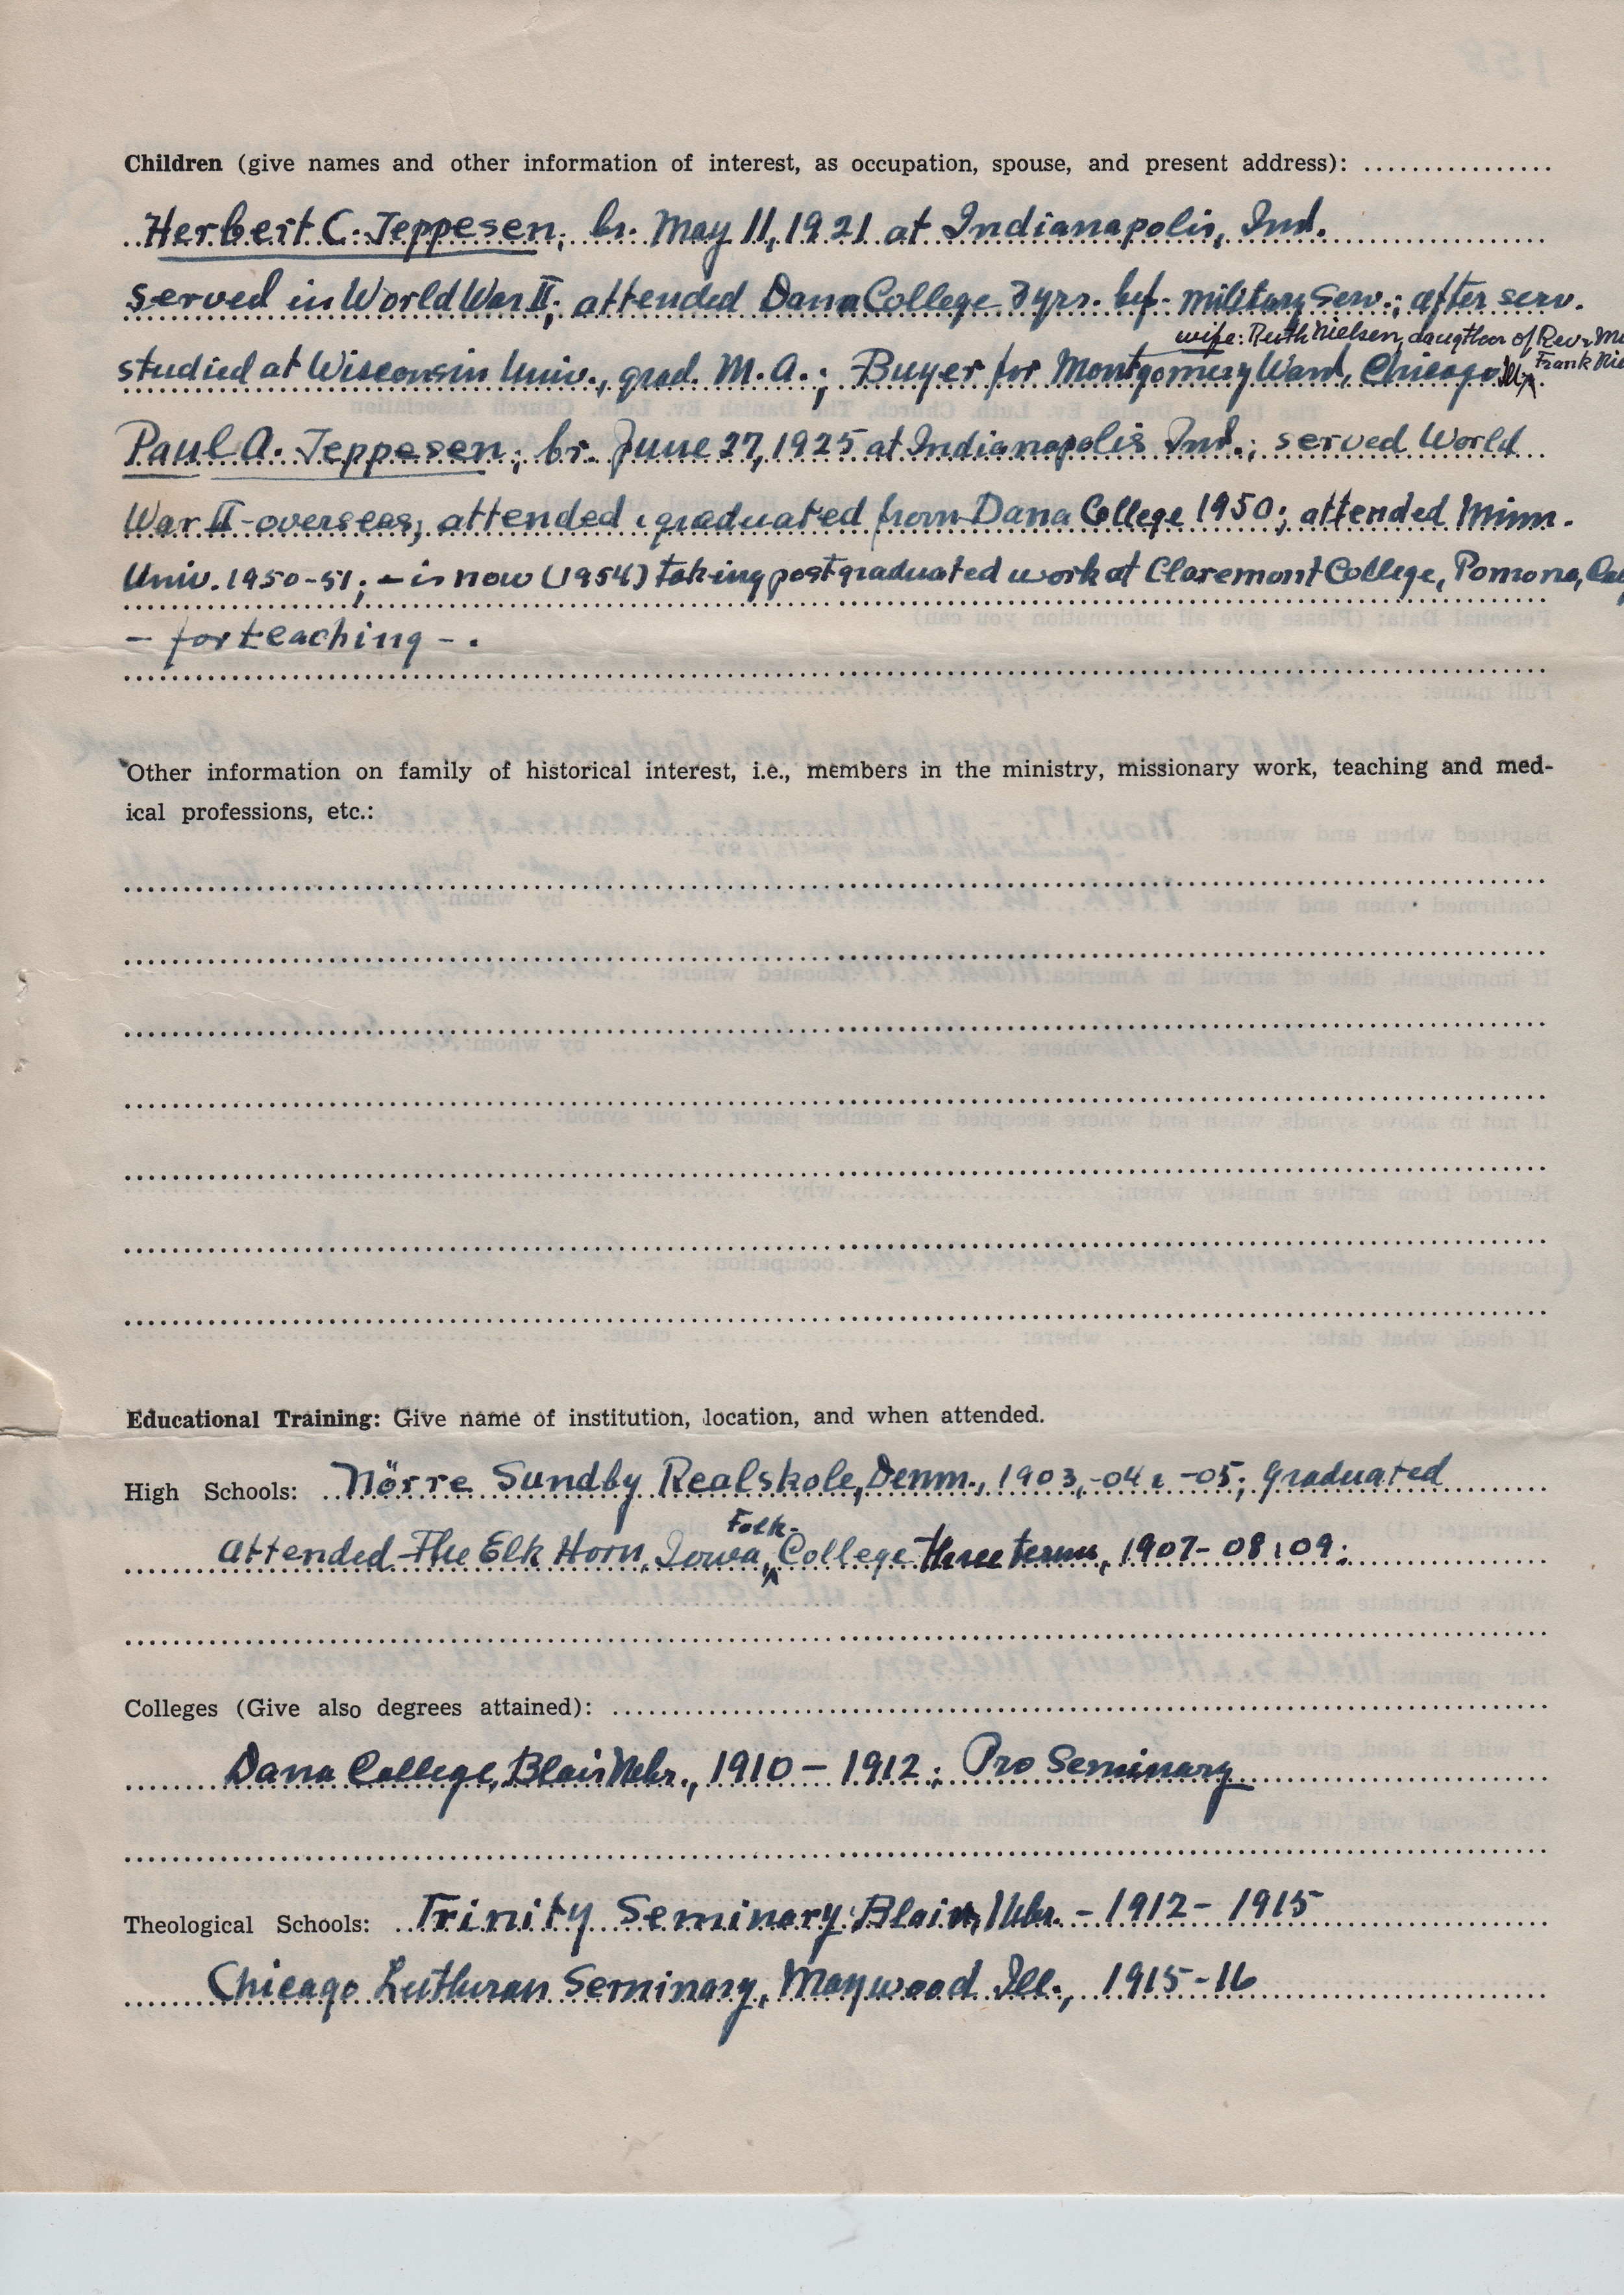 Children (give names and other information of interest, as occupation, spouse, and present address):
Herbert C. Jeppesen; br. May 11, 1921 at Indianapolis, Ind.
served in World War II; attended Dana College 3 yrs. bef. military serv.; after serv.
wife: Ruth Nielsen, daugther of Rev &
studied at Wisconsin Univ., grad. M.A.; Buyer for Montgomery Ward, Chicago Ill. Frank
Paul A. Jeppesen; br. June 27, 1925 at Indianapolis Ind.; served World
War II - overseas; attended & graduated from Dana College 1950; attended Minn.
Univ. 1950-51; - is now (1954) taking postgraduated work at Claremont College, Pomona,
- for teaching - .
Other information on family of historical interest, i.e., members in the ministry, missionary work, teaching and med-
ical professions, etc.:
Educational Training: Give name of institution, location, and when attended.
High Schools: Nörre Sundby Realskole, Denm., 1903, -04 & -05; graduated
Folk-
attended The Elk Horn, Iowa, College three terms, 1907-08 & 09;
Colleges (Give also degrees attained):
Dana College, Blair Nebr., 1910 - 1912; Pro Seminary
Theological Schools: Trinity Seminary, Blair, Nebr. - 1912 - 1915
Chicago Lutheran Seminary, Maywood Ill., 1915-16